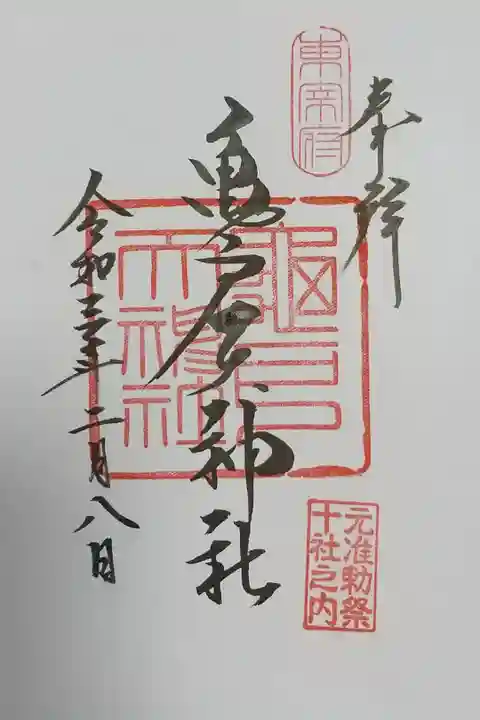 東宰府
奉拝
亀戸天神社
亀戸
天神社
令和三年二月八日
元准勅祭
十社之内